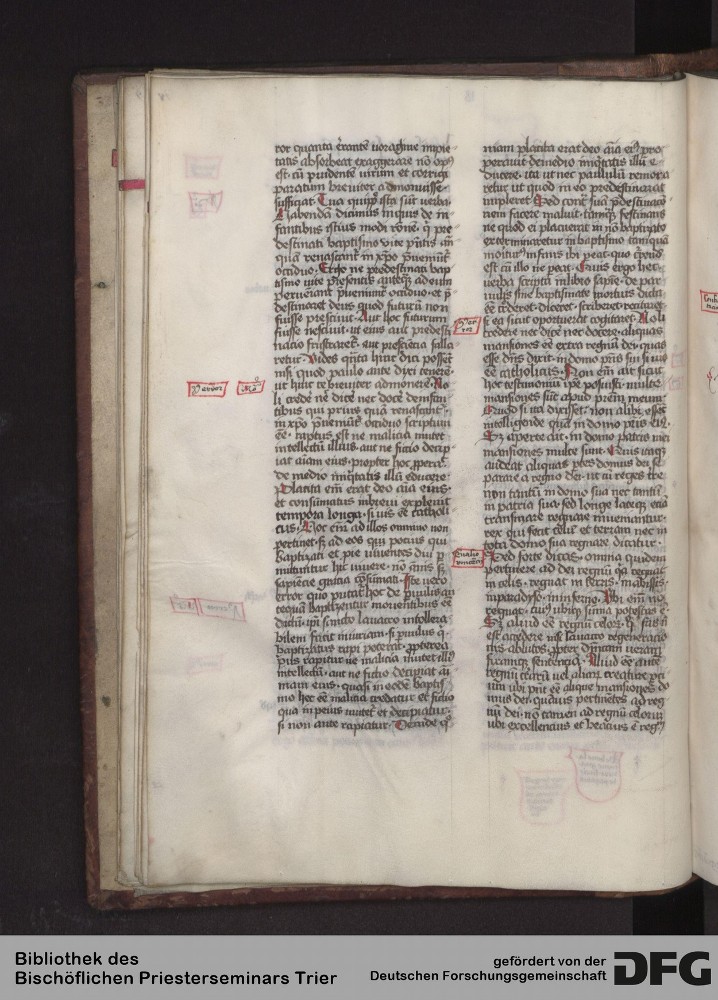 tor quanta errante uoragine impie
tatis absorbeat exaggerare nõ op9
est cũ prudentẽ uirum et corrigi
paratum breuiter admonuisse
sufficiat. Tua quippe ista sũt uerba.
Habendã dicimus inquis de in
fantibus istius modi rõne. q̃ pre
destinati baptismo vite pñtis añ
quã renascantr̃ in xpo preueniũt
occiduo. Ergo ne predestinati bap
tismo uite presentis anteq̃ ad eum
peruenirent preueniunt occiduo. et p̃
destinaret deus quod futurũ non
fuisse presciuit. Aut hoc futurum
fuisse nesciuit. ut eius aut predesti
natio frustraret. aut presciẽcia falle
retur. Vides q̃nta hinc dici possent
nisi quod paulo ante dixi tenerẽ
ut hinc te breuiter admonerẽ. No
li crede nẽ dicẽ nec docẽ de infan
tibus qui prius quã renascantr̃
in xpo preueniũt occiduo scriptum
eẽ. raptus est ne malicia mutet
intellectũ illius. aut ne fictio decip
iat aĩam eius. propter hoc properat
de medio iniq̃tatis illã educere
Placita em̃ erat deo aĩa eius.
et consũmatus in breui expleuit
tempora longa. si uis eẽ catholi
cus. Hoc em̃ ad illos omnino non
pertinet. sz ad eos qui pocius qui
baptizati et pie uiuentes diu p̃
mittuntur hic uiuere. nõ annis sz
sapiẽcie gratia consumati. Iste uero
error quo putat hoc de paruulis an
tequã baptizentur morientibus eẽ
dictũ. ipi sancto lauacro intollera
bilem facit iniuriam. si paruulus q̃
baptizatus rapi poterat. propterea
prius rapitur ne malicia mutet illi9
intellectũ. aut ne fictio decipiat a
nimam eius. quasi in eodẽ baptis
mo hec eẽ malicia credatur et fictio
qua in peius mutet et decipiatur.
si non ante rapiatur. Deinde q̃
niam placita erat deo aĩa ei9 pro
perauit de medio iniq̃tatis illũ e
ducere. ita ut nec paululũ remora
retur ut quod in eo predestinarat
impleret. Sed contra suã predestinatio
nem facere maluit. tamq̃ festinans
ne quod ei placuerat in nõ baptizato
exterminaretur in baptismo tamquã
moritur9 infans ibi pereat. quo currendũ
est cũ illo ne pereat. Quis ergo hec
uerba scripta in libro sapiẽ. de par
uulis sine baptismate mortuis dicta
eẽ crederet. diceret. scriberet. recitaret
si ea sicut oportuerat cogitaret. Noli
credere nec dicẽ nec docere. aliquas
mansiones eẽ extra regnũ dei. quas
esse dñs dixit. in domo pr̃is sui si uis
eẽ catholicus. Non em̃ ait sicut
hoc testimoniũ ipe posuisti. multe
mansiones sũt apud prẽm meum.
Quod si ita dixisset. non alibi essent
intelligende quã in domo pr̃is ei9.
Sz aperte ait. in domo patris mei
mansiones multe sunt. Quis itaq̃
audeat aliquas ptes domus dei se
parare a regno dei. ut cũ reges tr̃e
non tantũ in domo sua nec tantũ
in patria sua. sed longe lateq̃ eciã
transmare regnare inueniantur.
rex qui fecit celũ et terram nec in
tota domo sua regnare dicatur.
Sed forte dicas. omnia quidem
pertinere ad dei regnũ quia regnat
in celis. regnat in terris. in abissis.
in paradyso. in inferno. Ubi em̃ nõ
regnat. cui9 ubiq̃ sũma potestas ẽ
Sz aliud eẽ regnũ celorz. q̃ fas nõ
est accedere nisi lauacro regeneracio
nis ablutos. propter dñicam ueram
fixamq̃ sentenciã. Aliud eẽ aute
regnũ terrarũ uel aliarz creature par
tium ubi possint eẽ alique mansiones do
mus dei. quãuis pertinentes ad reg
nũ dei. nõ tamen ad regnũ celorũ
ubi excellencius et beacius ẽ regnũ
Bibliothek des
Bischöflichen Priesterseminars Trier
gefördert von der
Deutschen Forschungsgemeinschaft
DFG